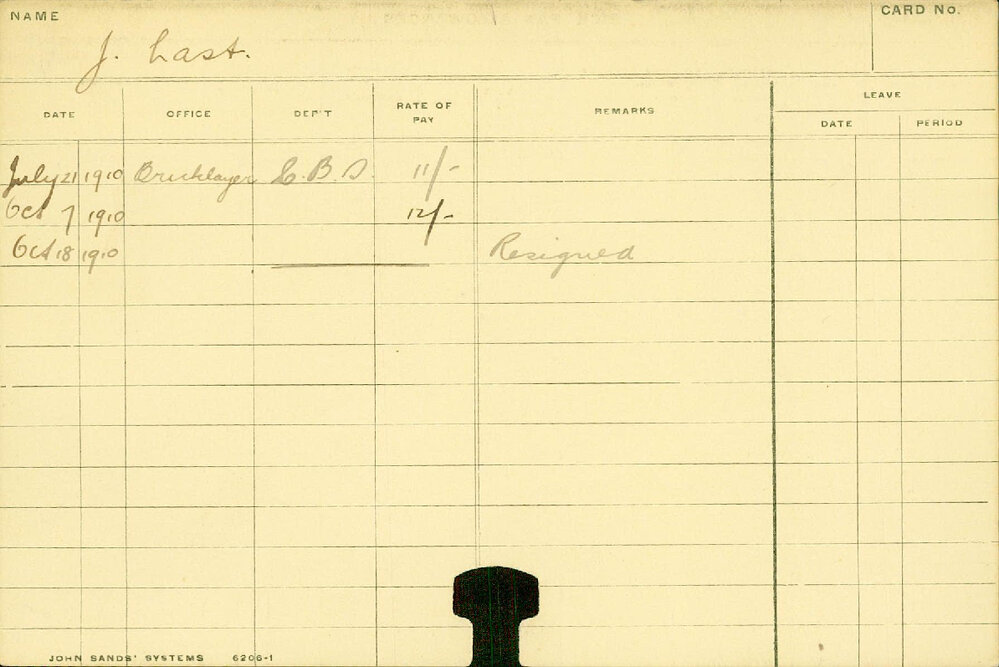 NAME
CARD No.
J. Last.
DATE OFFICE DEP'T RATE OF PAY REMARKS LEAVE
DATE PERIOD
July 21 1910 Bricklayer C.B.S. 11/-
Oct 7 1910 12/-
Oct 18 1910 Resigned
JOHN SANDS' SYSTEMS 6206-1